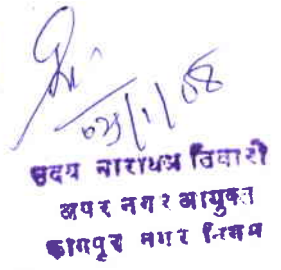 03/1/08
उदय नारायण तिवारी
अपर नगर आयुक्त
कानपुर नगर निगम